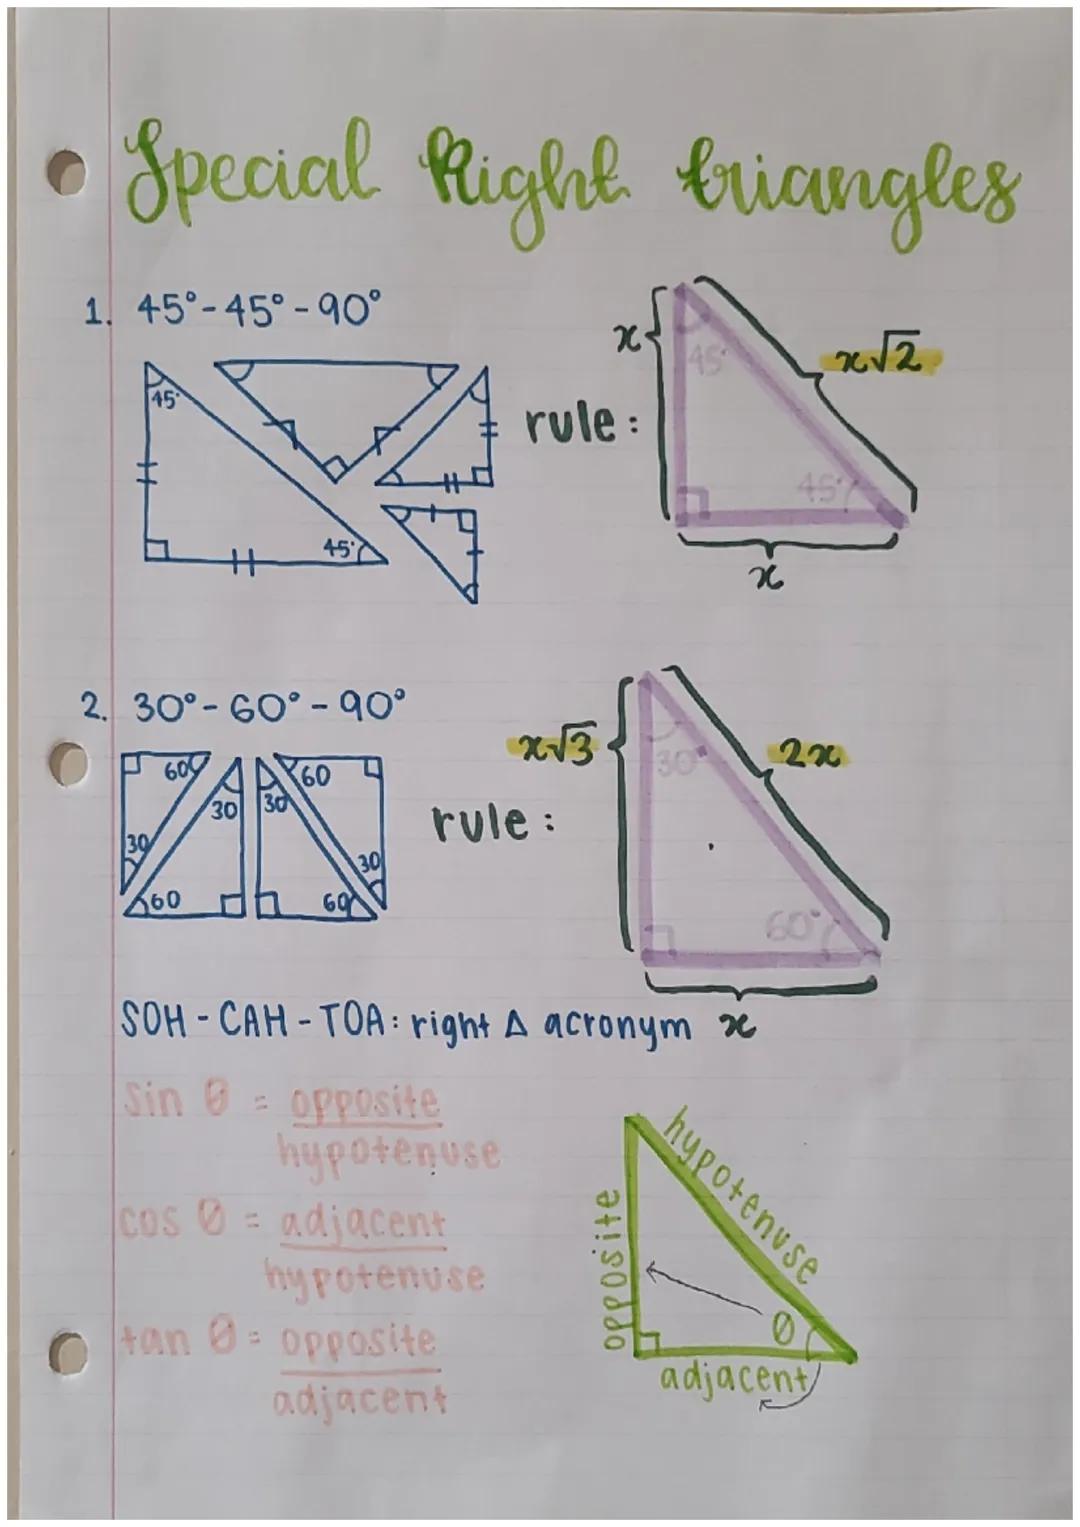 Special Right triangles
1. 45°-45°-90°
45°
45°
rule:
x
45°
x√2
45°
x
2. 30°-60°-90°
60
30
30
60
30
60
60
30
rule:
x√3
30°
2x
60°
x
SOH-CAH-TOA: right Δ acronym
Sin θ = opposite
hypotenuse
cos θ = adjacent
hypotenuse
tan θ = opposite
adjacent
hypotenuse
opposite
θ
adjacent